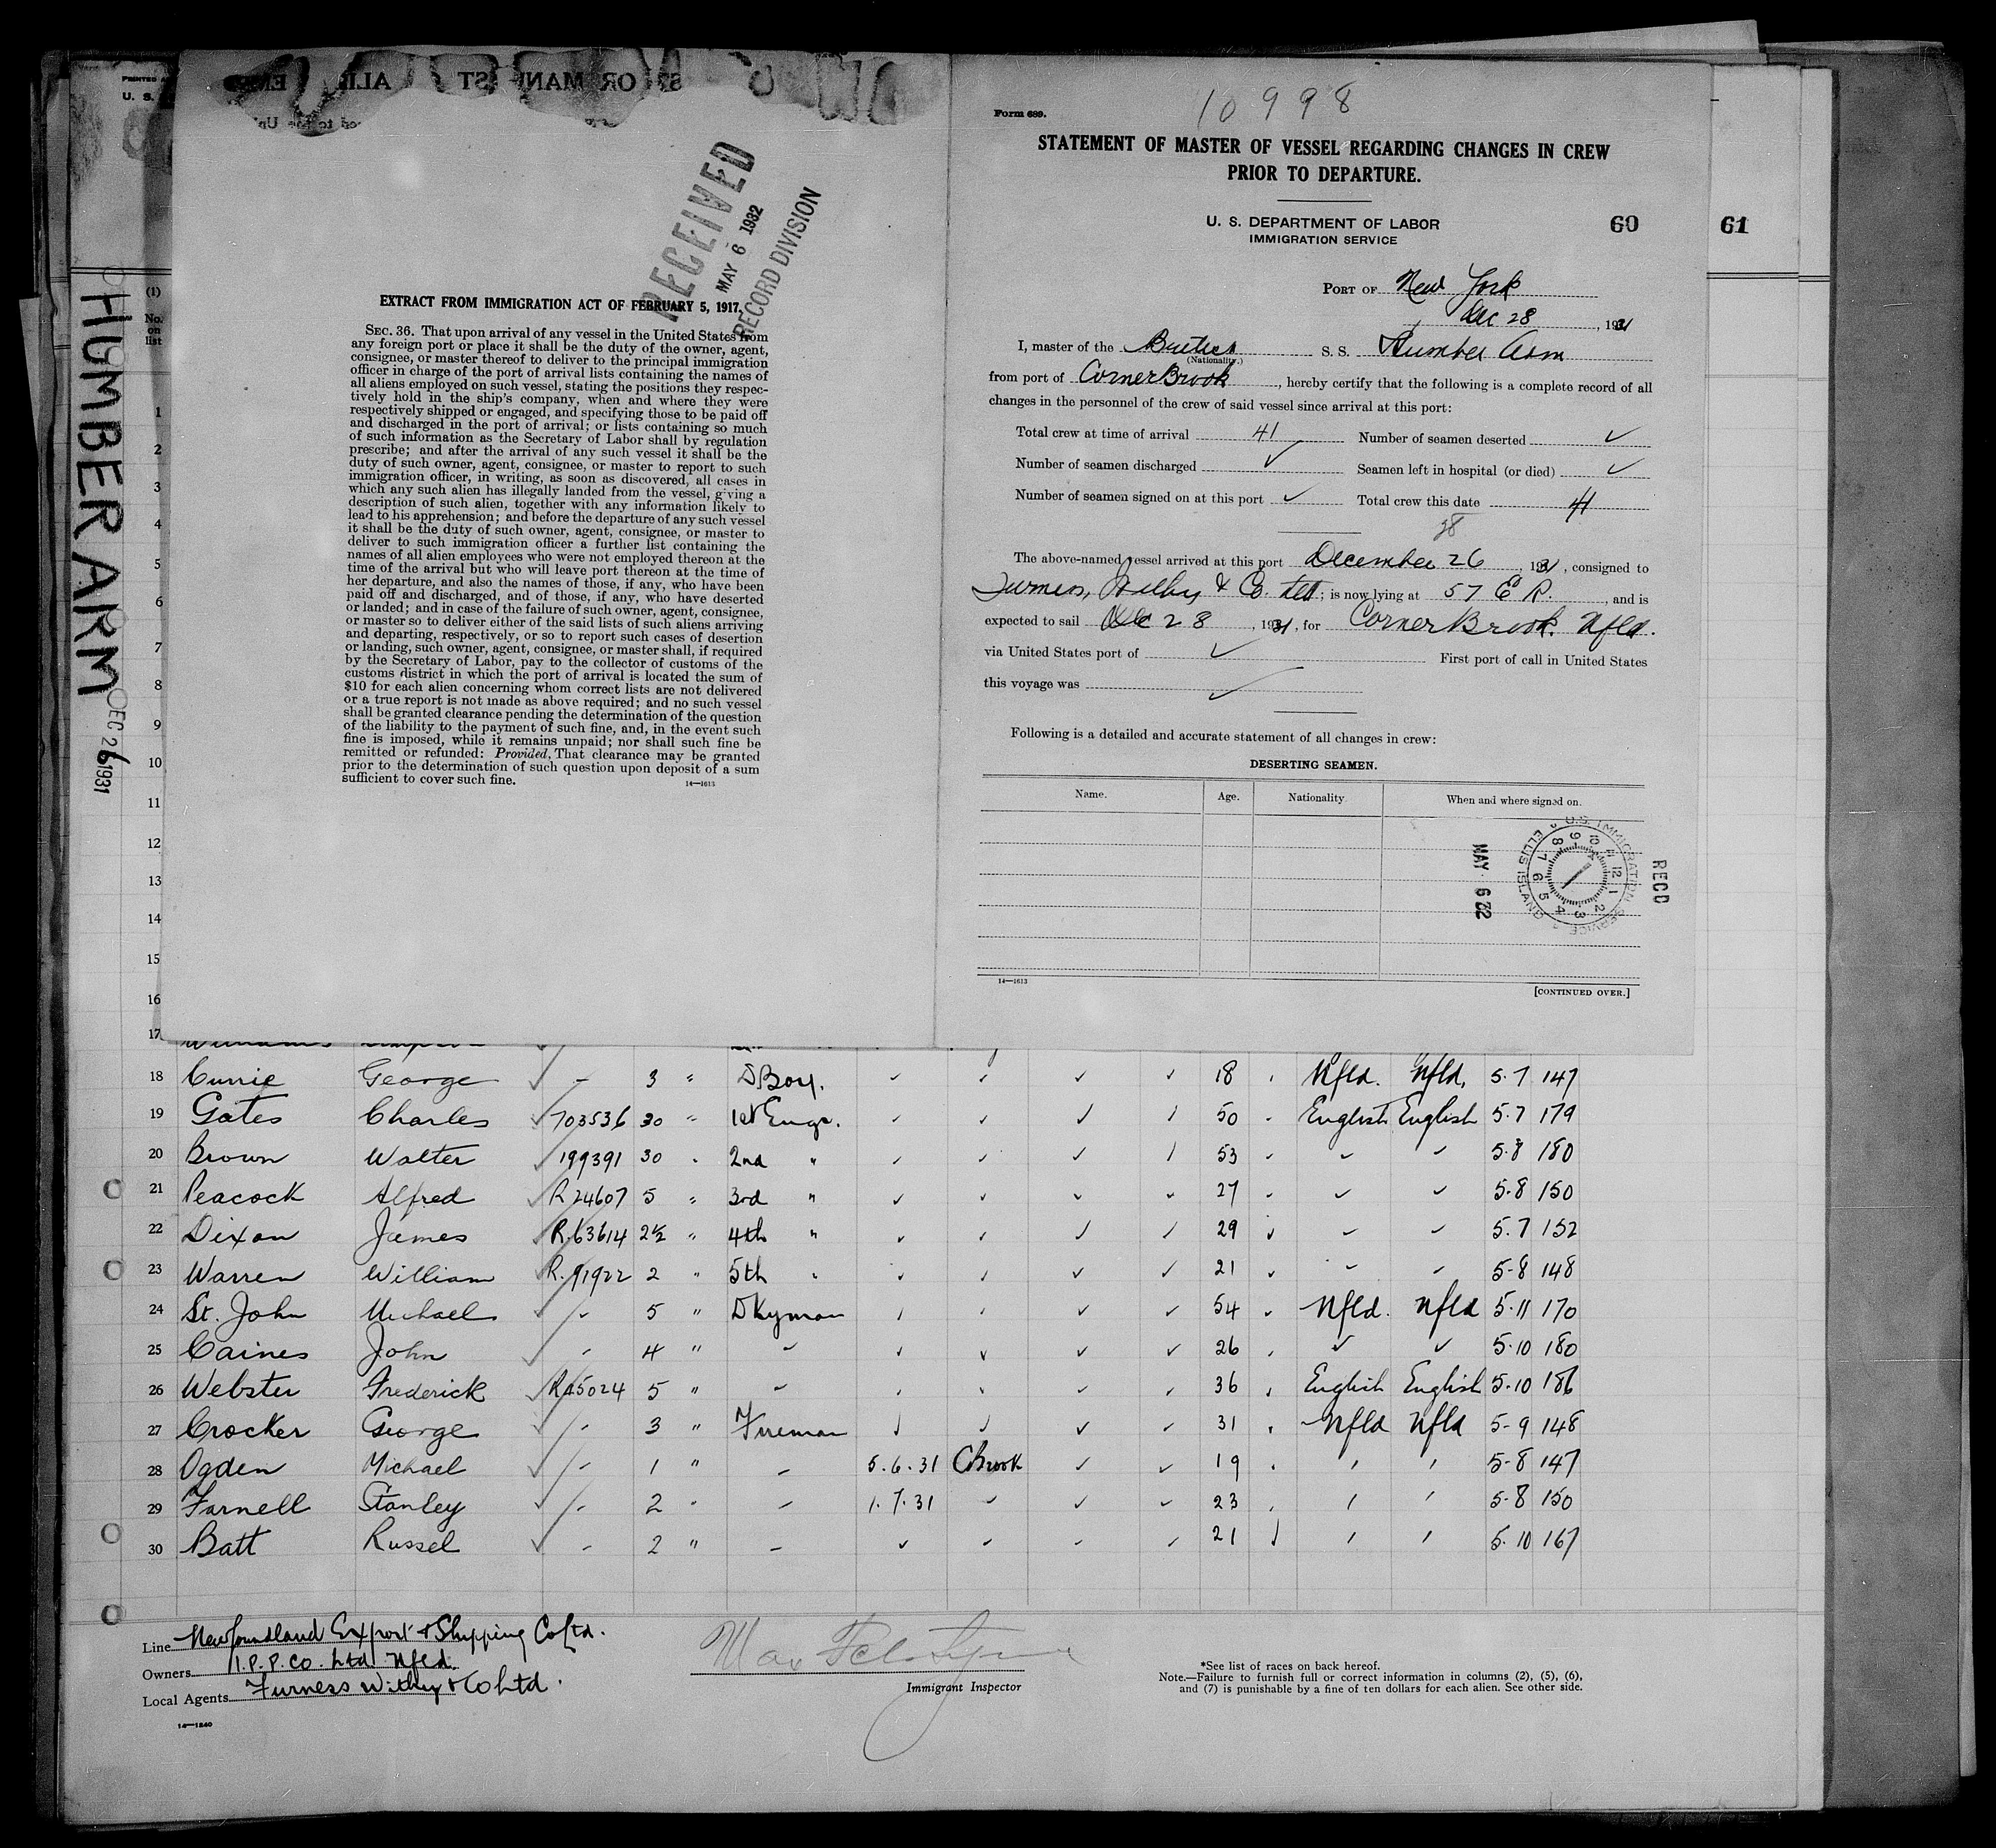 PRINTED
U. S.
(1)
No.
on
list
HUMBER ARM
DEC 26 1931
RECEIVED
MAY 6 1932
RECORD DIVISION
EXTRACT FROM IMMIGRATION ACT OF FEBRUARY 5, 1917.
SEC. 36. That upon arrival of any vessel in the United States from
any foreign port or place it shall be the duty of the owner, agent,
consignee, or master thereof to deliver to the principal immigration
officer in charge of the port of arrival lists containing the names of
all aliens employed on such vessel, stating the positions they respec-
tively hold in the ship's company, when and where they were
respectively shipped or engaged, and specifying those to be paid off
and discharged in the port of arrival; or lists containing so much
of such information as the Secretary of Labor shall by regulation
prescribe; and after the arrival of any such vessel it shall be the
duty of such owner, agent, consignee, or master to report to such
immigration officer, in writing, as soon as discovered, all cases in
which any such alien has illegally landed from the vessel, giving a
description of such alien, together with any information likely to
lead to his apprehension; and before the departure of any such vessel
it shall be the duty of such owner, agent, consignee, or master to
deliver to such immigration officer a further list containing the
names of all alien employees who were not employed thereon at the
time of the arrival but who will leave port thereon at the time of
her departure, and also the names of those, if any, who have been
paid off and discharged, and of those, if any, who have deserted
or landed; and in case of the failure of such owner, agent, consignee,
or master so to deliver either of the said lists of such aliens arriving
and departing, respectively, or so to report such cases of desertion
or landing, such owner, agent, consignee, or master shall, if required
by the Secretary of Labor, pay to the collector of customs of the
customs district in which the port of arrival is located the sum of
$10 for each alien concerning whom correct lists are not delivered
or a true report is not made as above required; and no such vessel
shall be granted clearance pending the determination of the question
of the liability to the payment of such fine, and, in the event such
fine is imposed, while it remains unpaid; nor shall such fine be
remitted or refunded: Provided, That clearance may be granted
prior to the determination of such question upon deposit of a sum
sufficient to cover such fine. 14—1613
Form 689. 10998
STATEMENT OF MASTER OF VESSEL REGARDING CHANGES IN CREW
PRIOR TO DEPARTURE.
U. S. DEPARTMENT OF LABOR
IMMIGRATION SERVICE
60 61
PORT OF New York
Dec 28, 1931
I, master of the British S. S. Humber Arm
(Nationality.)
from port of Corner Brook, hereby certify that the following is a complete record of all
changes in the personnel of the crew of said vessel since arrival at this port:
Total crew at time of arrival 41 Number of seamen deserted ✓
Number of seamen discharged ✓ Seamen left in hospital (or died) ✓
Number of seamen signed on at this port ✓ Total crew this date 41
28
The above-named vessel arrived at this port December 26, 1931, consigned to
Furness, Withy & Co. Ltd; is now lying at 57 E R., and is
expected to sail Dec 28, 1931, for Corner Brook. Nfld.
via United States port of ✓ First port of call in United States
this voyage was ✓
Following is a detailed and accurate statement of all changes in crew:
DESERTING SEAMEN.
Name. Age. Nationality. When and where signed on.
U.S. IMMIGRATION SERVICE ELLIS ISLAND
RECD
MAY 6 32
14—1613
[CONTINUED OVER.]
1
2
3
4
5
6
7
8
9
10
11
12
13
14
15
16
17
18 Currie George ✓ - 3 " D Boy. ✓ ✓ ✓ ✓ 18 Nfld. Nfld. 5.7 147
19 Gates Charles ✓ 703536 30 " 1st Engr. ✓ ✓ ✓ ✓ 50 English English 5.7 179
20 Brown Walter ✓ 199391 30 " 2nd " ✓ ✓ ✓ ✓ 53 ✓ ✓ 5.8 180
21 Peacock Alfred ✓ R 24607 5 " 3rd " ✓ ✓ ✓ ✓ 27 ✓ ✓ 5-8 150
22 Dixon James R.63614 2½ " 4th " ✓ ✓ ✓ ✓ 29 ✓ ✓ 5.7 152
23 Warren William R.91922 2 " 5th " ✓ ✓ ✓ ✓ 21 ✓ ✓ 5-8 148
24 St. John Michael ✓ - 5 " DKyman ✓ ✓ ✓ ✓ 54 Nfld. Nfld 5.11 170
25 Caines John ✓ - 4 " ✓ ✓ ✓ ✓ ✓ 26 ✓ ✓ 5.10 180
26 Webster Frederick ✓ 5 " ✓ ✓ ✓ ✓ ✓ 36 English English 5.10 186
27 Crocker George ✓ - 3 " Fireman ✓ ✓ ✓ ✓ 31 Nfld Nfld 5-9 148
28 Ogden Michael ✓ - 1 " - 5.6.31 CBrook ✓ ✓ 19 5-8 147
29 Farnell Stanley ✓ - 2 " - 1.7.31 ✓ ✓ ✓ 23 5-8 150
30 Batt Russel ✓ - 2 " - ✓ ✓ ✓ ✓ 21 5.10 167
Line Newfoundland Export & Shipping Co Ltd.
Owners I.P.P. Co. Ltd Nfld.
Local Agents Furness Withy & Co Ltd.
14—1240
Immigrant Inspector
*See list of races on back hereof.
Note.—Failure to furnish full or correct information in columns (2), (5), (6),
and (7) is punishable by a fine of ten dollars for each alien. See other side.